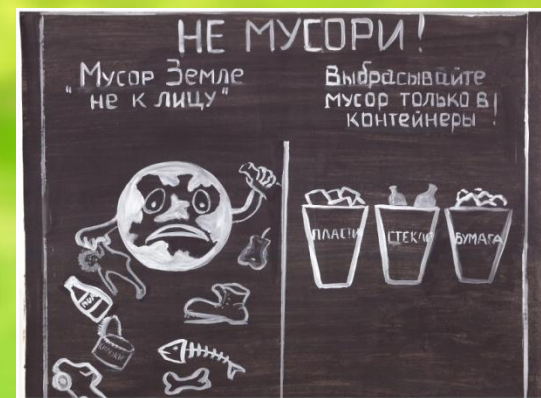 НЕ МУСОРИ!
"Мусор Земле
не к лицу"
Выбрасывайте
мусор только в
контейнеры!
ПЛАСТИ
СТЕКЛО
БУМАГА